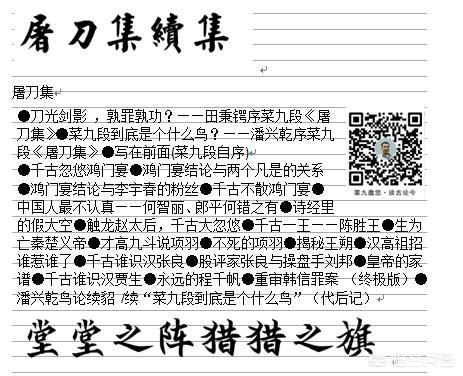 屠刀集續集
屠刀集
●刀光剑影，孰罪孰功？——田秉锷序菜九段《屠
刀集》●菜九段到底是个什么鸟？——潘兴乾序菜九
段《屠刀集》●写在前面(菜九段自序)
●千古忽悠鸿门宴●鸿门宴结论与两个凡是的关系
●鸿门宴结论与李宇春的粉丝●千古不散鸿门宴●
中国人最不认真——何智丽、郎平何错之有●诗经里
的假大空●触龙赵太后，千古大忽悠●千古一王——陈胜王●生为
亡秦楚义帝●才高九斗说项羽●不死的项羽●揭秘王朔●汉高祖招
谁惹谁了●千古谁识汉张良●股评家张良与操盘手刘邦●皇帝的家
谱●千古谁识汉贾生●永远的程千帆●重审韩信罪案（终极版）●
潘兴乾鸟论续貂 /续“菜九段到底是个什么鸟”（代后记）
菜九邀您·谈古论今
堂堂之阵猎猎之旗
悟空问答